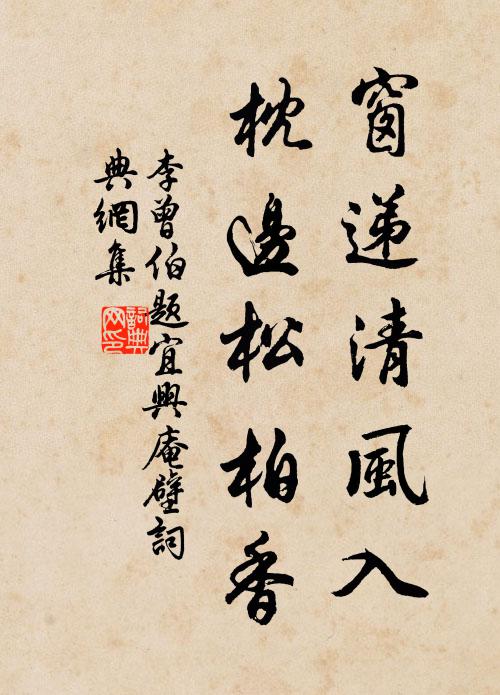 窗递清風入
枕邊松柏香
李曾伯題宜興庵壁詞
典網集
詞典
网印